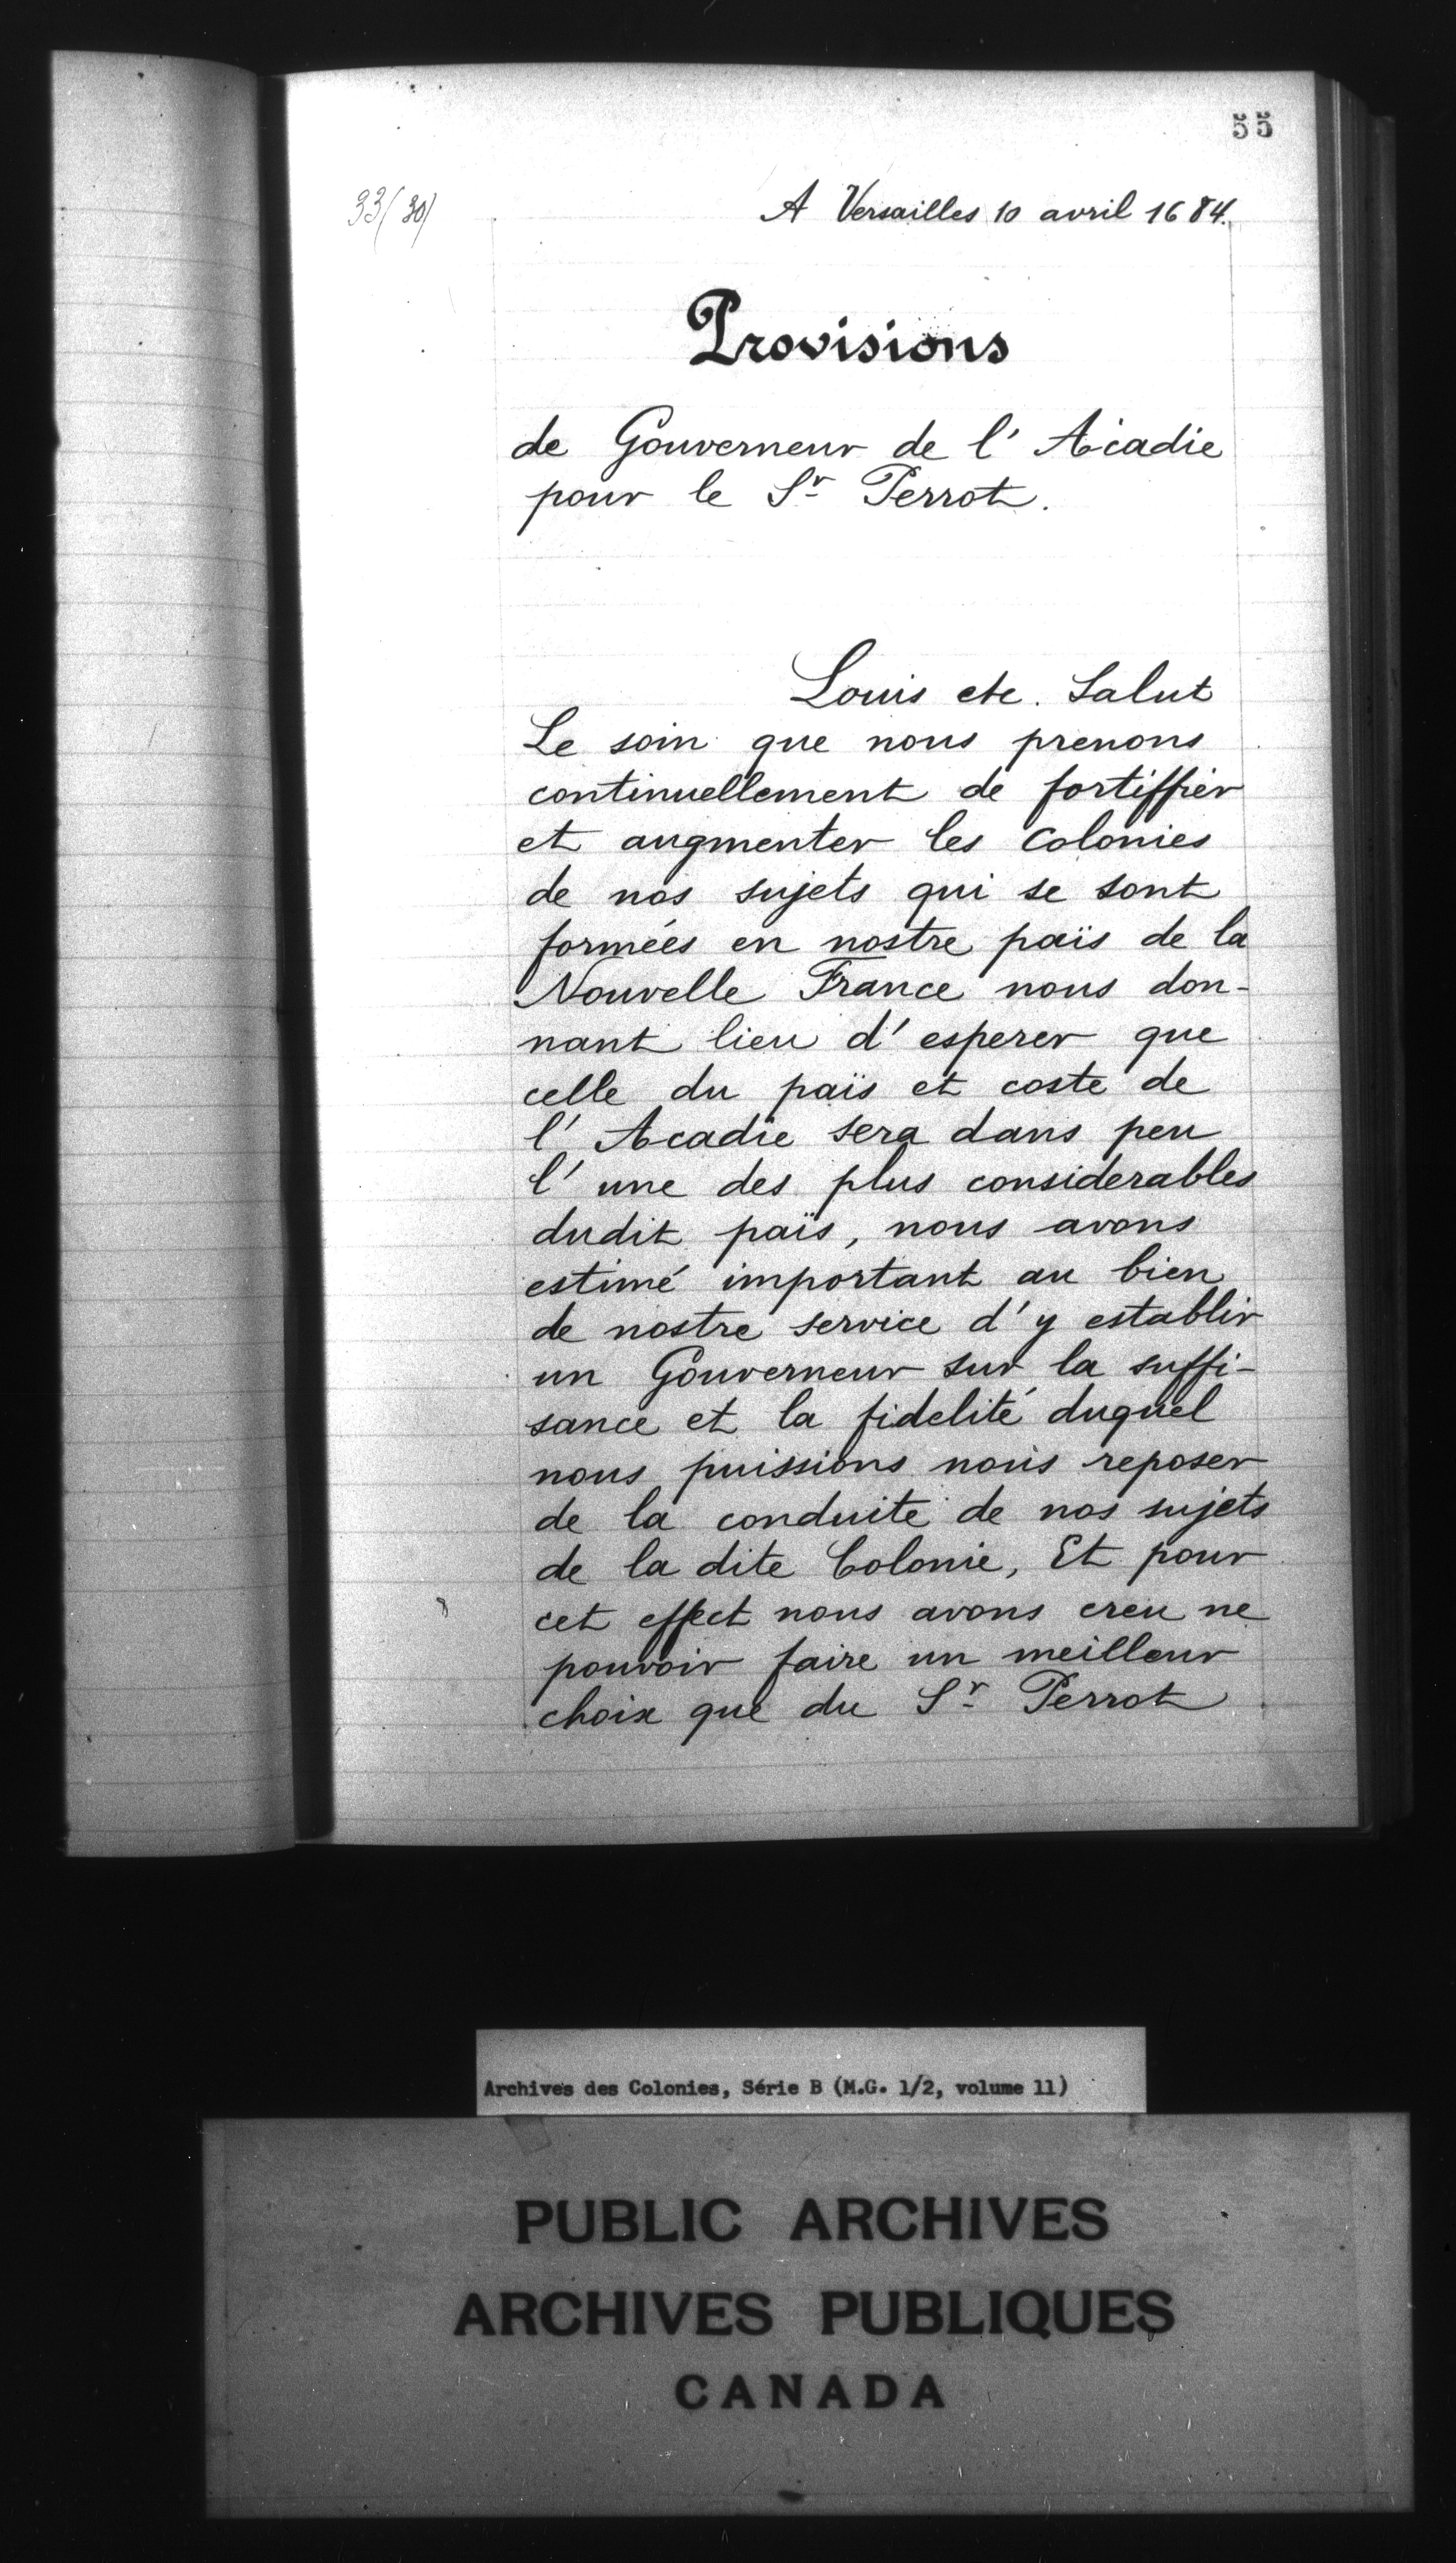 55
33(30)
A Versailles 10 avril 1684.
Provisions
de Gouverneur de l' Acadie
pour le Sr Perrot.
Louis etc. Salut
Le soin que nous prenons
continuellement de fortiffier
et augmenter les Colonies
de nos sujets qui se sont
formées en nostre païs de la
Nouvelle France nous don-
nant lieu d' esperer que
celle du païs et coste de
l' Acadie sera dans peu
l' une des plus considerables
dudit païs, nous avons
estimé important au bien
de nostre service d' y establir
un Gouverneur sur la suffi-
sance et la fidelité duquel
nous puissions nous reposer
de la conduite de nos sujets
de la dite Colonie, Et pour
cet effect nous avons creu ne
pouvoir faire un meilleur
choix que du Sr Perrot
Archives des Colonies, Série B (M.G. 1/2, volume 11)
PUBLIC ARCHIVES
ARCHIVES PUBLIQUES
CANADA